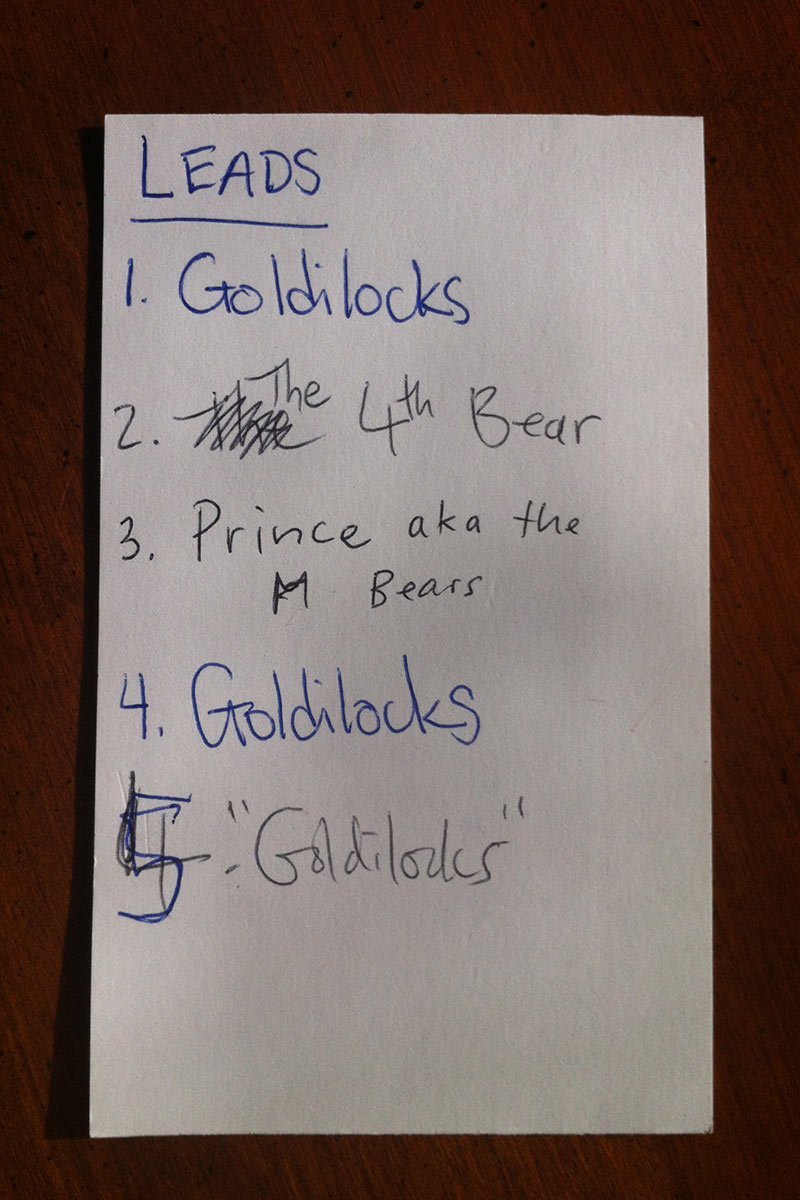 LEADS
1. Goldilocks
2. The 4th Bear
3. Prince aka the
Bears
4. Goldilocks
5. "Goldilocks"